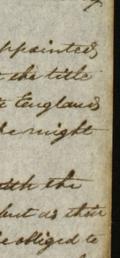 appointed
the title
England
he might
with the
but as their
be obliged to